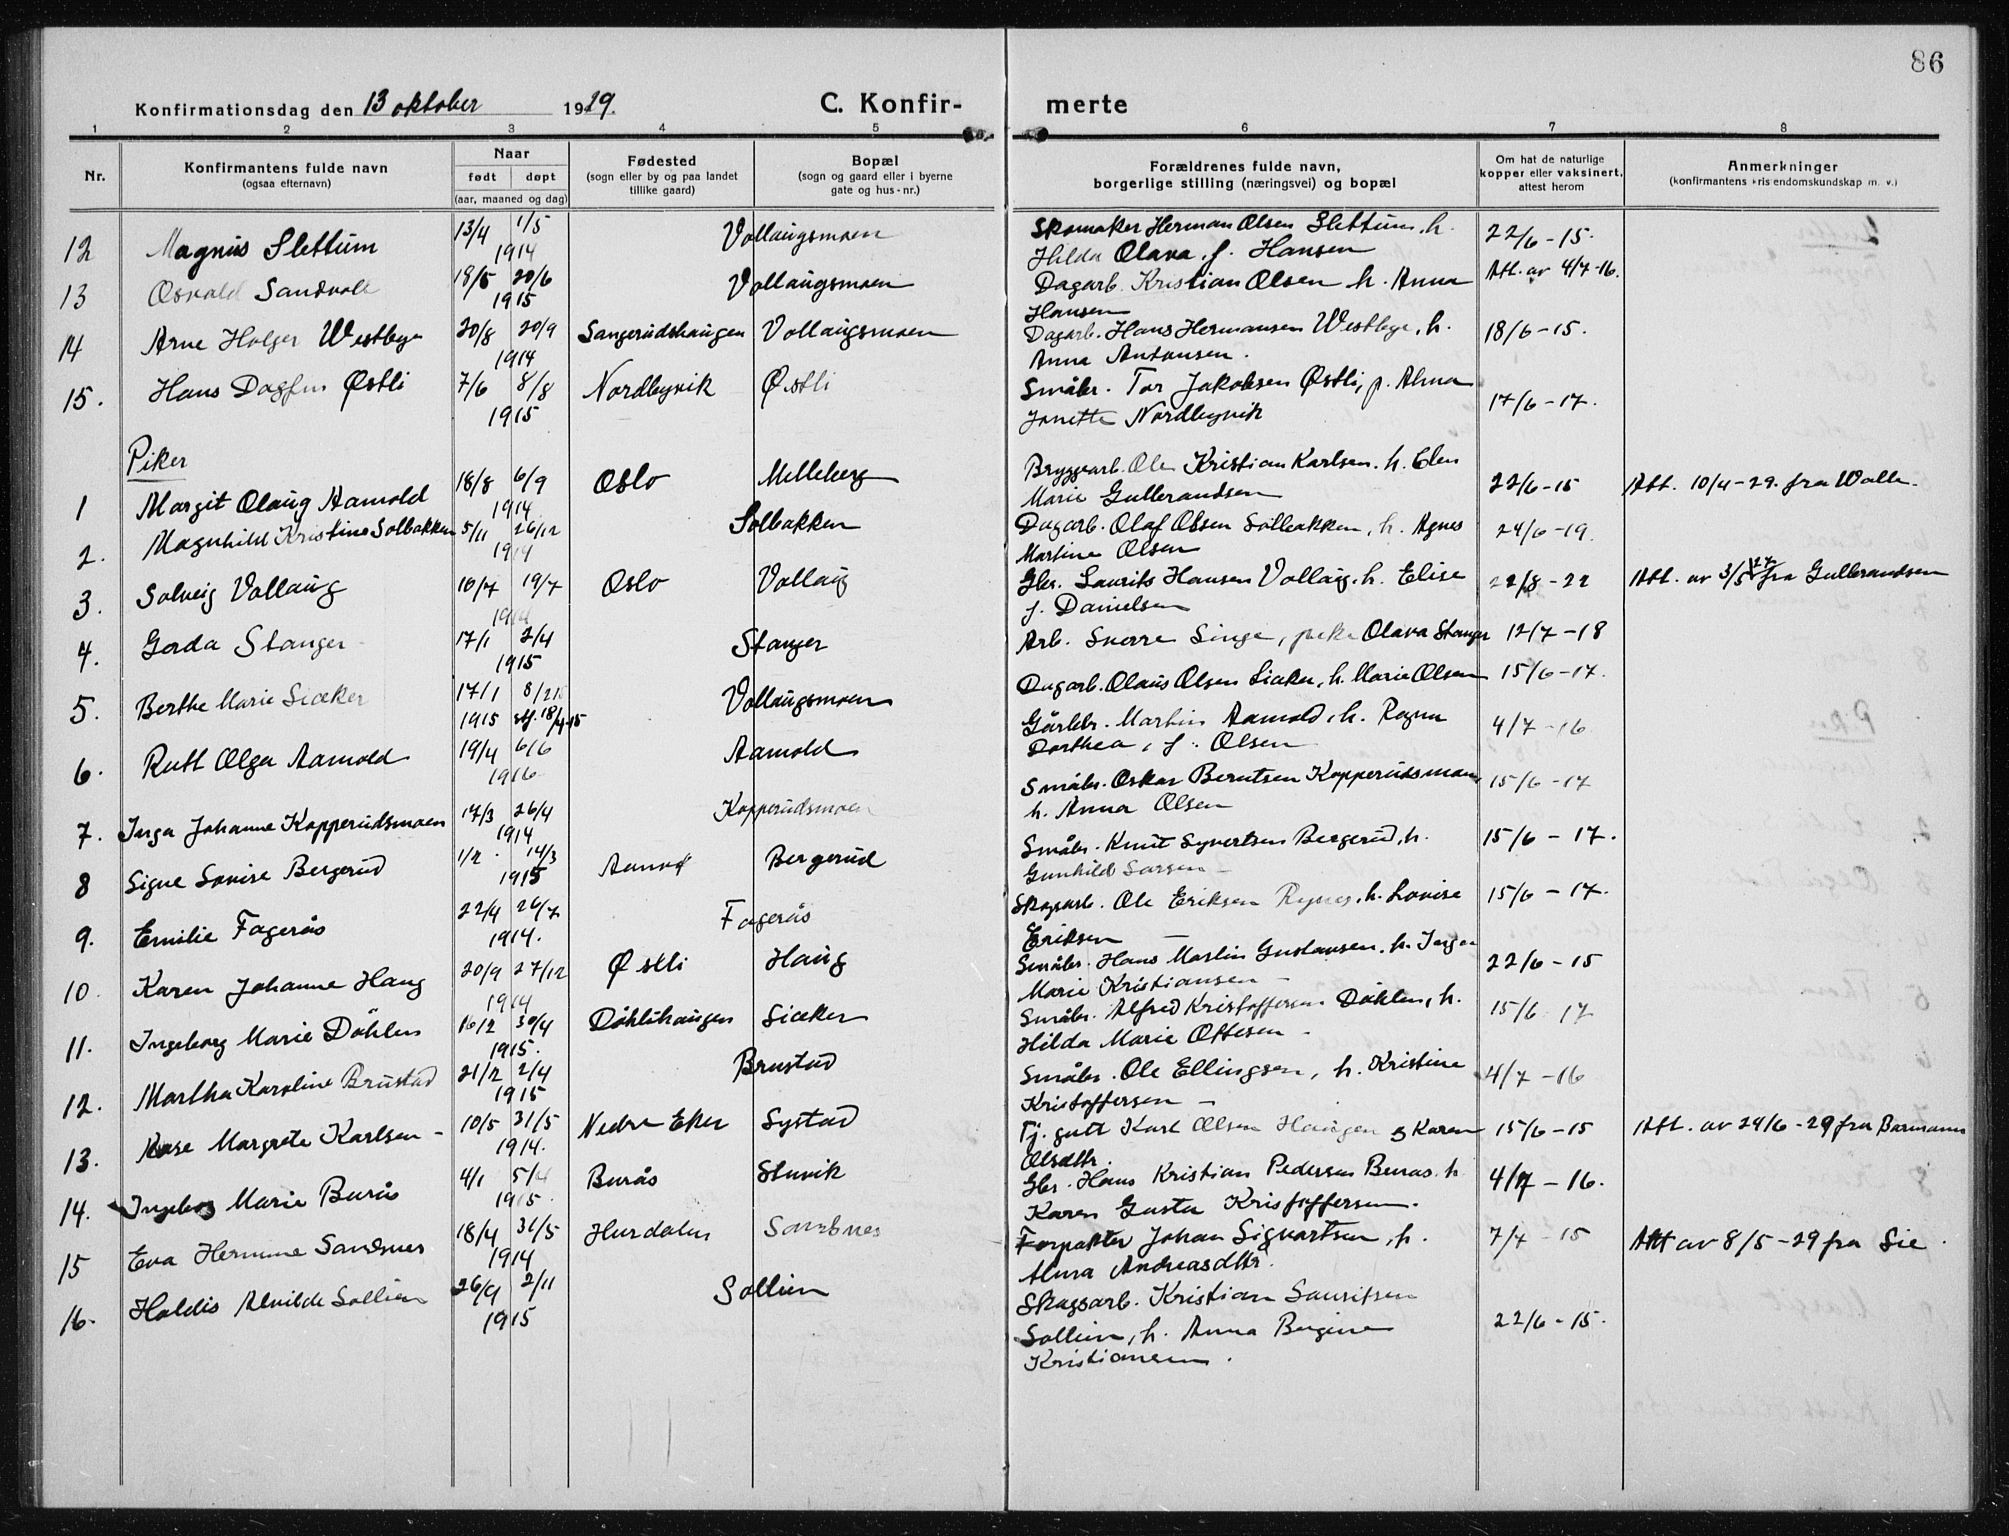 86
Konfirmationsdag den 13 oktober 1929.
C. Konfir- merte
1 2 3 4 5 6 7 8
Nr.
Konfirmantens fulde navn
(ogsaa efternavn)
Naar
født døpt
(aar, maaned og dag)
Fødested
(sogn eller by og paa landet
tillike gaard)
Bopæl
(sogn og gaard eller i byerne
gate og hus-nr.)
Forældrenes fulde navn,
borgerlige stilling (næringsvei) og bopæl
Om hat de naturlige
kopper eller vaksinert,
attest herom
Anmerkninger
(konfirmantens kristendomskundskap m. v.)
12 Magnus Slettum 13/4 1/5 1914 Vollaugsmoen Skomaker Herman Olsen Slettum, h. 22/6-15.
Hilda Olava, f. Hansen
13 Osvald Sandvold 19/5 20/6 1915 Vollaugsmoen Dagarb. Kristian Olsen h. Anna Att. av 4/7-16.
Hansen
14 Arne Holger Westbye 20/8 20/9 1914 Sangerudshaugen Vollaugsmoen Dagarb. Hans Hermansen Westbye, h. 18/6-15.
Anna Antonsen.
15. Hans Dagfin Østli 7/6 8/8 1915 Nordbyvik Østli Småbr. Tor Jakobsen Østli, p. Alma 17/6-17.
Janette Nordbyvik
Piker
1 Margit Olaug Aamold 18/8 6/9 1914 Oslo Melleberg Bryggarb. Ole Kristian Karlsen. h. Elen 22/6-15 Att. 10/4-29. fra Walle.
Marie Gullerandsen
2. Magnhild Kristine Solbakken 5/11 26/12 1914 Solbakken Dagarb. Olaf Olsen Solbakken, h. Agnes 24/6-19.
Martine Olsen
3. Solveig Vollaug 10/7 19/7 1914 Oslo Vollaug Gbr. Laurits Hansen Vollaug. h. Elise 22/8-22 Att. av 3/5 fra Gullerandsen
f. Danielsen
4. Gerda Stanger 17/1 2/4 1915 Stanger Arb. Snorre Singe, pike Olava Stanger 12/7-18
5. Berthe Marie Sicker 17/1 8/2 1915 18/4-15 Vollaugsmoen Dagarb. Olaus Olsen Sicker, h. Marie Olsen 15/6-17.
6. Rutt Olga Aamold 19/4 6/6 1916 Aamold Gårbr. Martin Aamold, h. Ragna 4/7-16
Dorthea, f. Olsen
7. Inga Johanne Kopperudsmoen 17/3 26/4 1914 Kopperudsmoen Småbr. Oskar Berntsen Kopperudsmoen, 15/6-17
h. Anna Olsen
8 Signe Lovise Bergerud 1/2 14/3 1915 Bergerud Småbr. Knut Syvertsen Bergerud, h. 15/6-17.
Gunhild Larsen
9. Emilie Fagerås 22/4 26/7 1914. Fagerås Skogsarb. Ole Eriksen, h. Lovise 15/6-17.
Eriksen
10. Karen Johanne Haug 20/9 27/12 1914 Østli Haug Småbr. Hans Martin Gustavsen, h. Inger 22/6-15
Marie Kristiansen
11. Ingeborg Marie Döhlen 16/2 30/4 1915. Döhlihaugen Sicker Småbr. Alfred Kristoffersen Döhlen, h. 15/6 17
Hilda Marie Ottesen
12. Martha Karoline Brustad 21/2 2/4 1915 Brustad Småbr. Ole Ellingsen, h. Kristine 4/7-16
Kristoffersen
13. Aase Margrete Karlsen 10/5 31/5 1914. Nedre Eker Systad Tj. gutt Karl Olsen Haugen og Karen 15/6-15 Att. av 24/6-29 fra Barmann
Olsdttr.
14. Ingeborg Marie Burås 4/1 5/4 1915. Burås Stuvik Gbr. Hans Kristian Pedersen Burås. h. 4/7-16.
Karen Gusta Kristoffersen.
15 Eva Hermine Sandsnes 18/4 31/5 1914 Hurdalen Sandsnes Forpakter Johan Sigvartsen, h. 7/7-15 Att av 8/5-29 fra Lie
Alma Andreasdttr.
16. Haldis Alvilde Sollien 26/9 2/11 1915 Sollien Skogsarb. Kristian Lauritsen 22/6-15.
Sollien, h. Anna Bergine
Kristiansen.